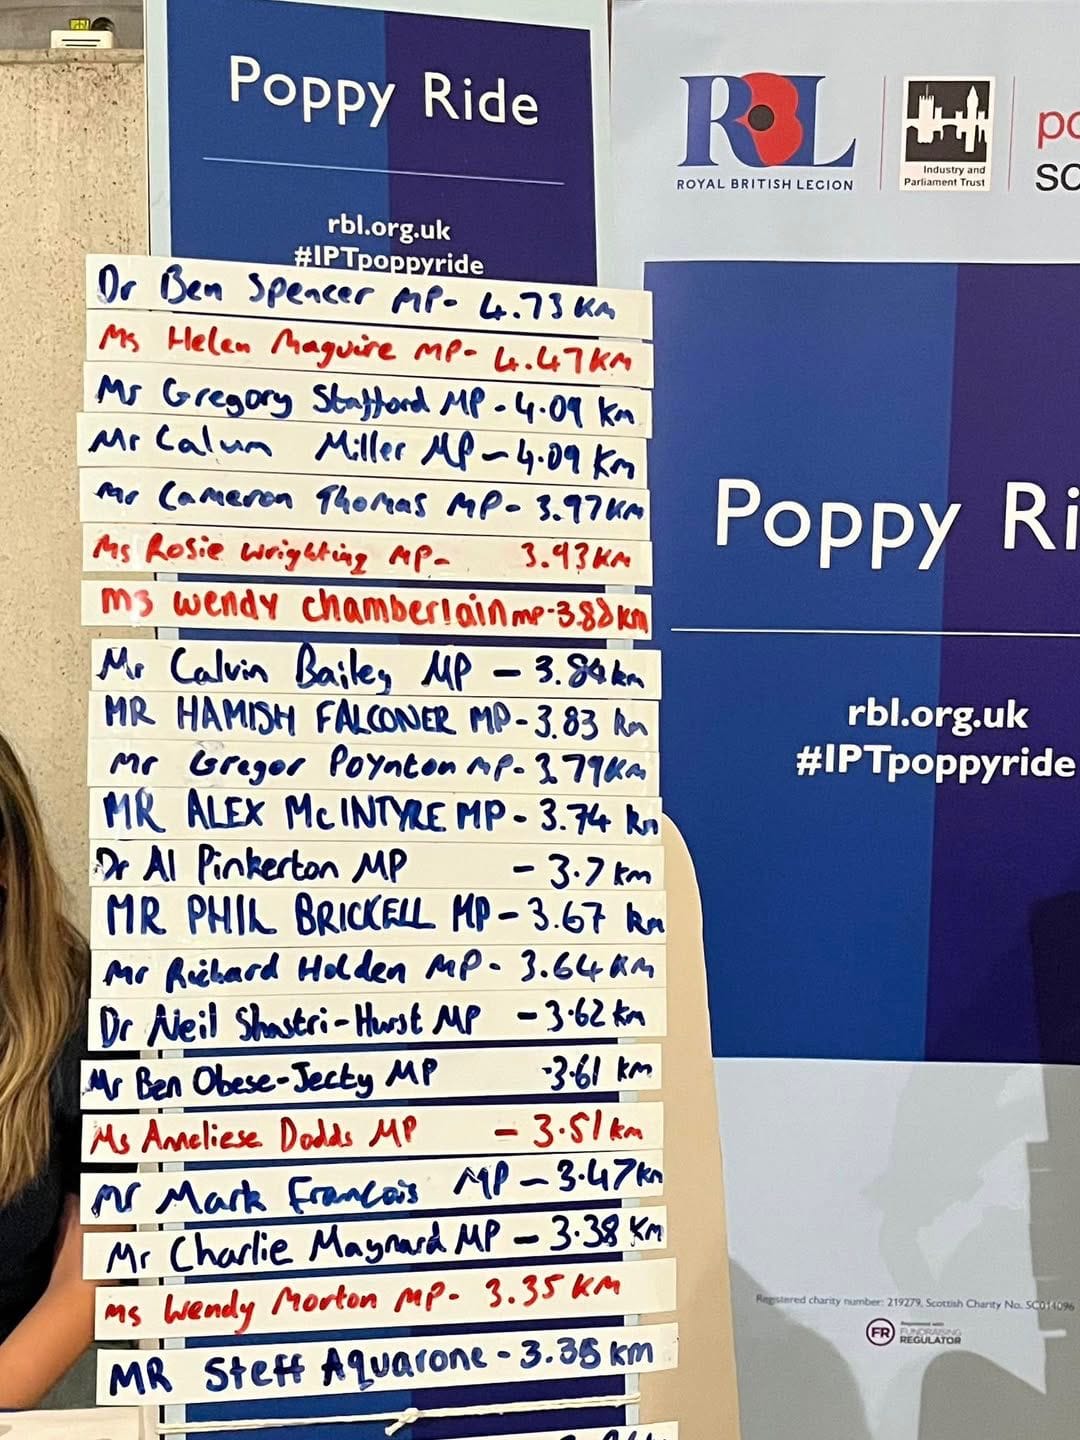 Poppy Ride
rbl.org.uk
#IPTpoppyride
Dr Ben Spencer MP- 4.73 Km
Ms Helen Maguire MP- 4.47KM
Mr Gregory Stafford MP - 4.09 Km
Mr Calum Miller MP - 4.09 Km
Mr Cameron Thomas MP- 3.97KM
Ms Rosie Wrighting MP- 3.93KM
Ms Wendy Chamberlain MP-3.88KM
Mr Calvin Bailey MP - 3.84km
MR HAMISH FALCONER MP-3.83 Km
Mr Gregor Poynton MP- 3.79KM
MR ALEX McINTYRE MP - 3.74 Km
Dr Al Pinkerton MP - 3.7 Km
MR PHIL BRICKELL MP - 3.67 Km
Mr Richard Holden MP - 3.64 KM
Dr Neil Shastri-Hurst MP - 3.62 Km
Mr Ben Obese-Jecty MP -3.61 KM
Ms Anneliese Dodds MP - 3.51 Km
Mr Mark Francois MP - 3.47Km
Mr Charlie Maynard MP - 3.38 KM
Ms Wendy Morton MP- 3.35 KM
MR Steff Aquarone - 3.35 KM
RBL
ROYAL BRITISH LEGION
Industry and
Parliament Trust
Poppy Ri
rbl.org.uk
#IPTpoppyride
Registered charity number: 219279, Scottish Charity No. SC014096
FR
Registered with
FUNDRAISING
REGULATOR